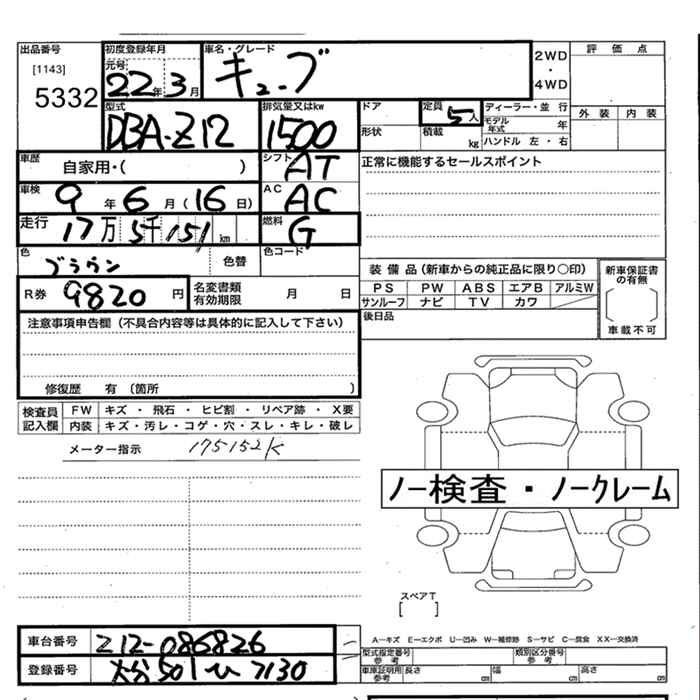 出品番号
[1143]
5332
初度登録年月
元号
22年3月
車名・グレード
キューブ
2WD
・
4WD
評価点
外装 内装
型式
DBA-Z12
排気量又はkw
1500
ドア
形状
定員
5人
積載 kg
ディーラー・並行
モデル年式 年
ハンドル 左・右
車歴
自家用・( )
シフト
AT
正常に機能するセールスポイント
車検
9年6月(16日)
AC
AC
走行
17万5千151km
燃料
G
色
ブラウン
色替
色コード
R券 9820円
名変書類
有効期限 月 日
装備品(新車からの純正品に限り○印)
PS PW ABS エアB アルミW
サンルーフ ナビ TV カワ
新車保証書
の有無
車載不可
後日品
注意事項申告欄(不具合内容等は具体的に記入して下さい)
修復歴 有(箇所 )
検査員
記入欄
FW キズ・飛石・ヒビ割・リペア跡・X要
内装 キズ・汚レ・コゲ・穴・スレ・キレ・破レ
メーター指示 175152K
ノー検査・ノークレーム
スペアT
[ ]
A-キズ E-エクボ U-凹み W-補修跡 S-サビ C-腐食 XX-交換済
車台番号 Z12-086826
登録番号 大分501 7130
型式指定番号
参考
類別区分番号
参考
車庫証明用
参考
長さ cm 幅 cm 高さ cm